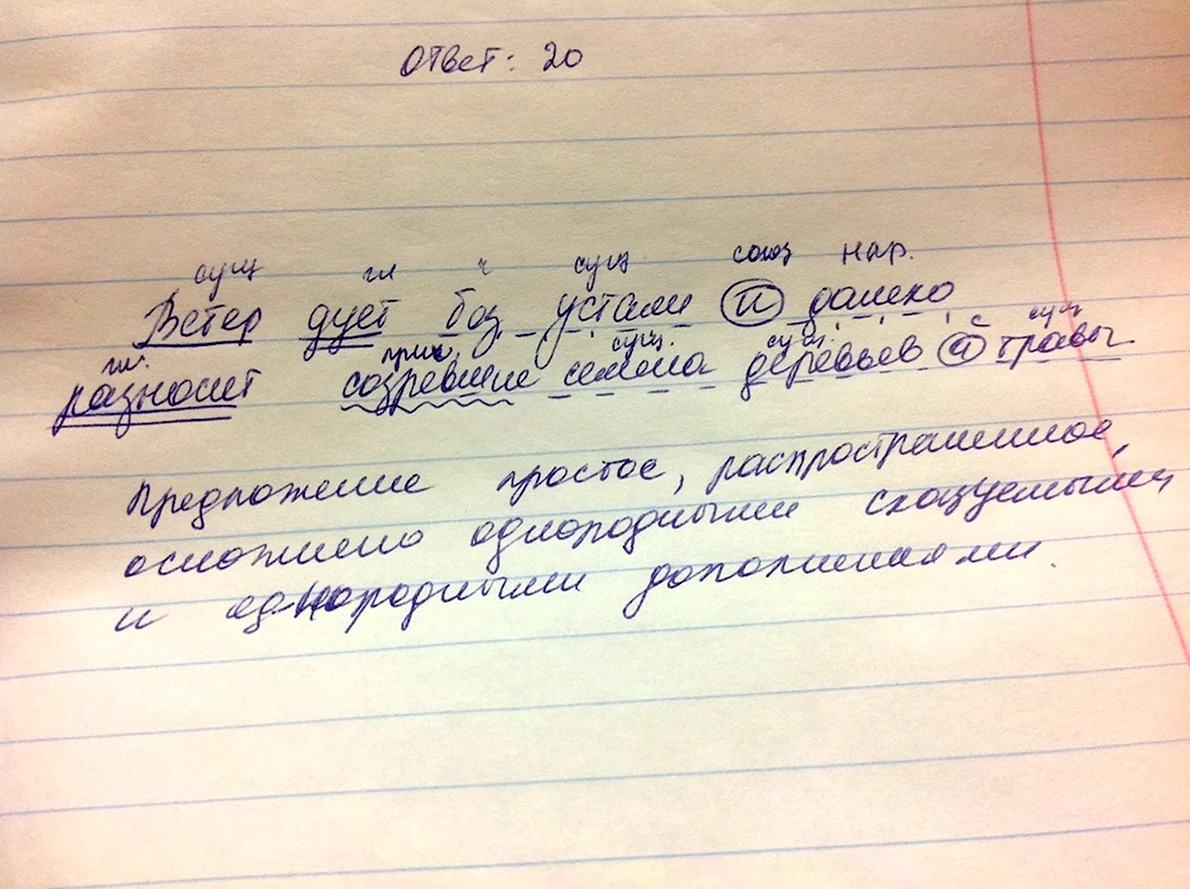 Ответ: 20
сущ гл ч сущ союз нар.
Ветер дует без устали и далеко
гл. прил. сущ. сущ. с сущ
разносит созревшие семена деревьев и травы.
Предложение простое, распространенное,
осложнено однородными сказуемыми
и однородными дополнениями.